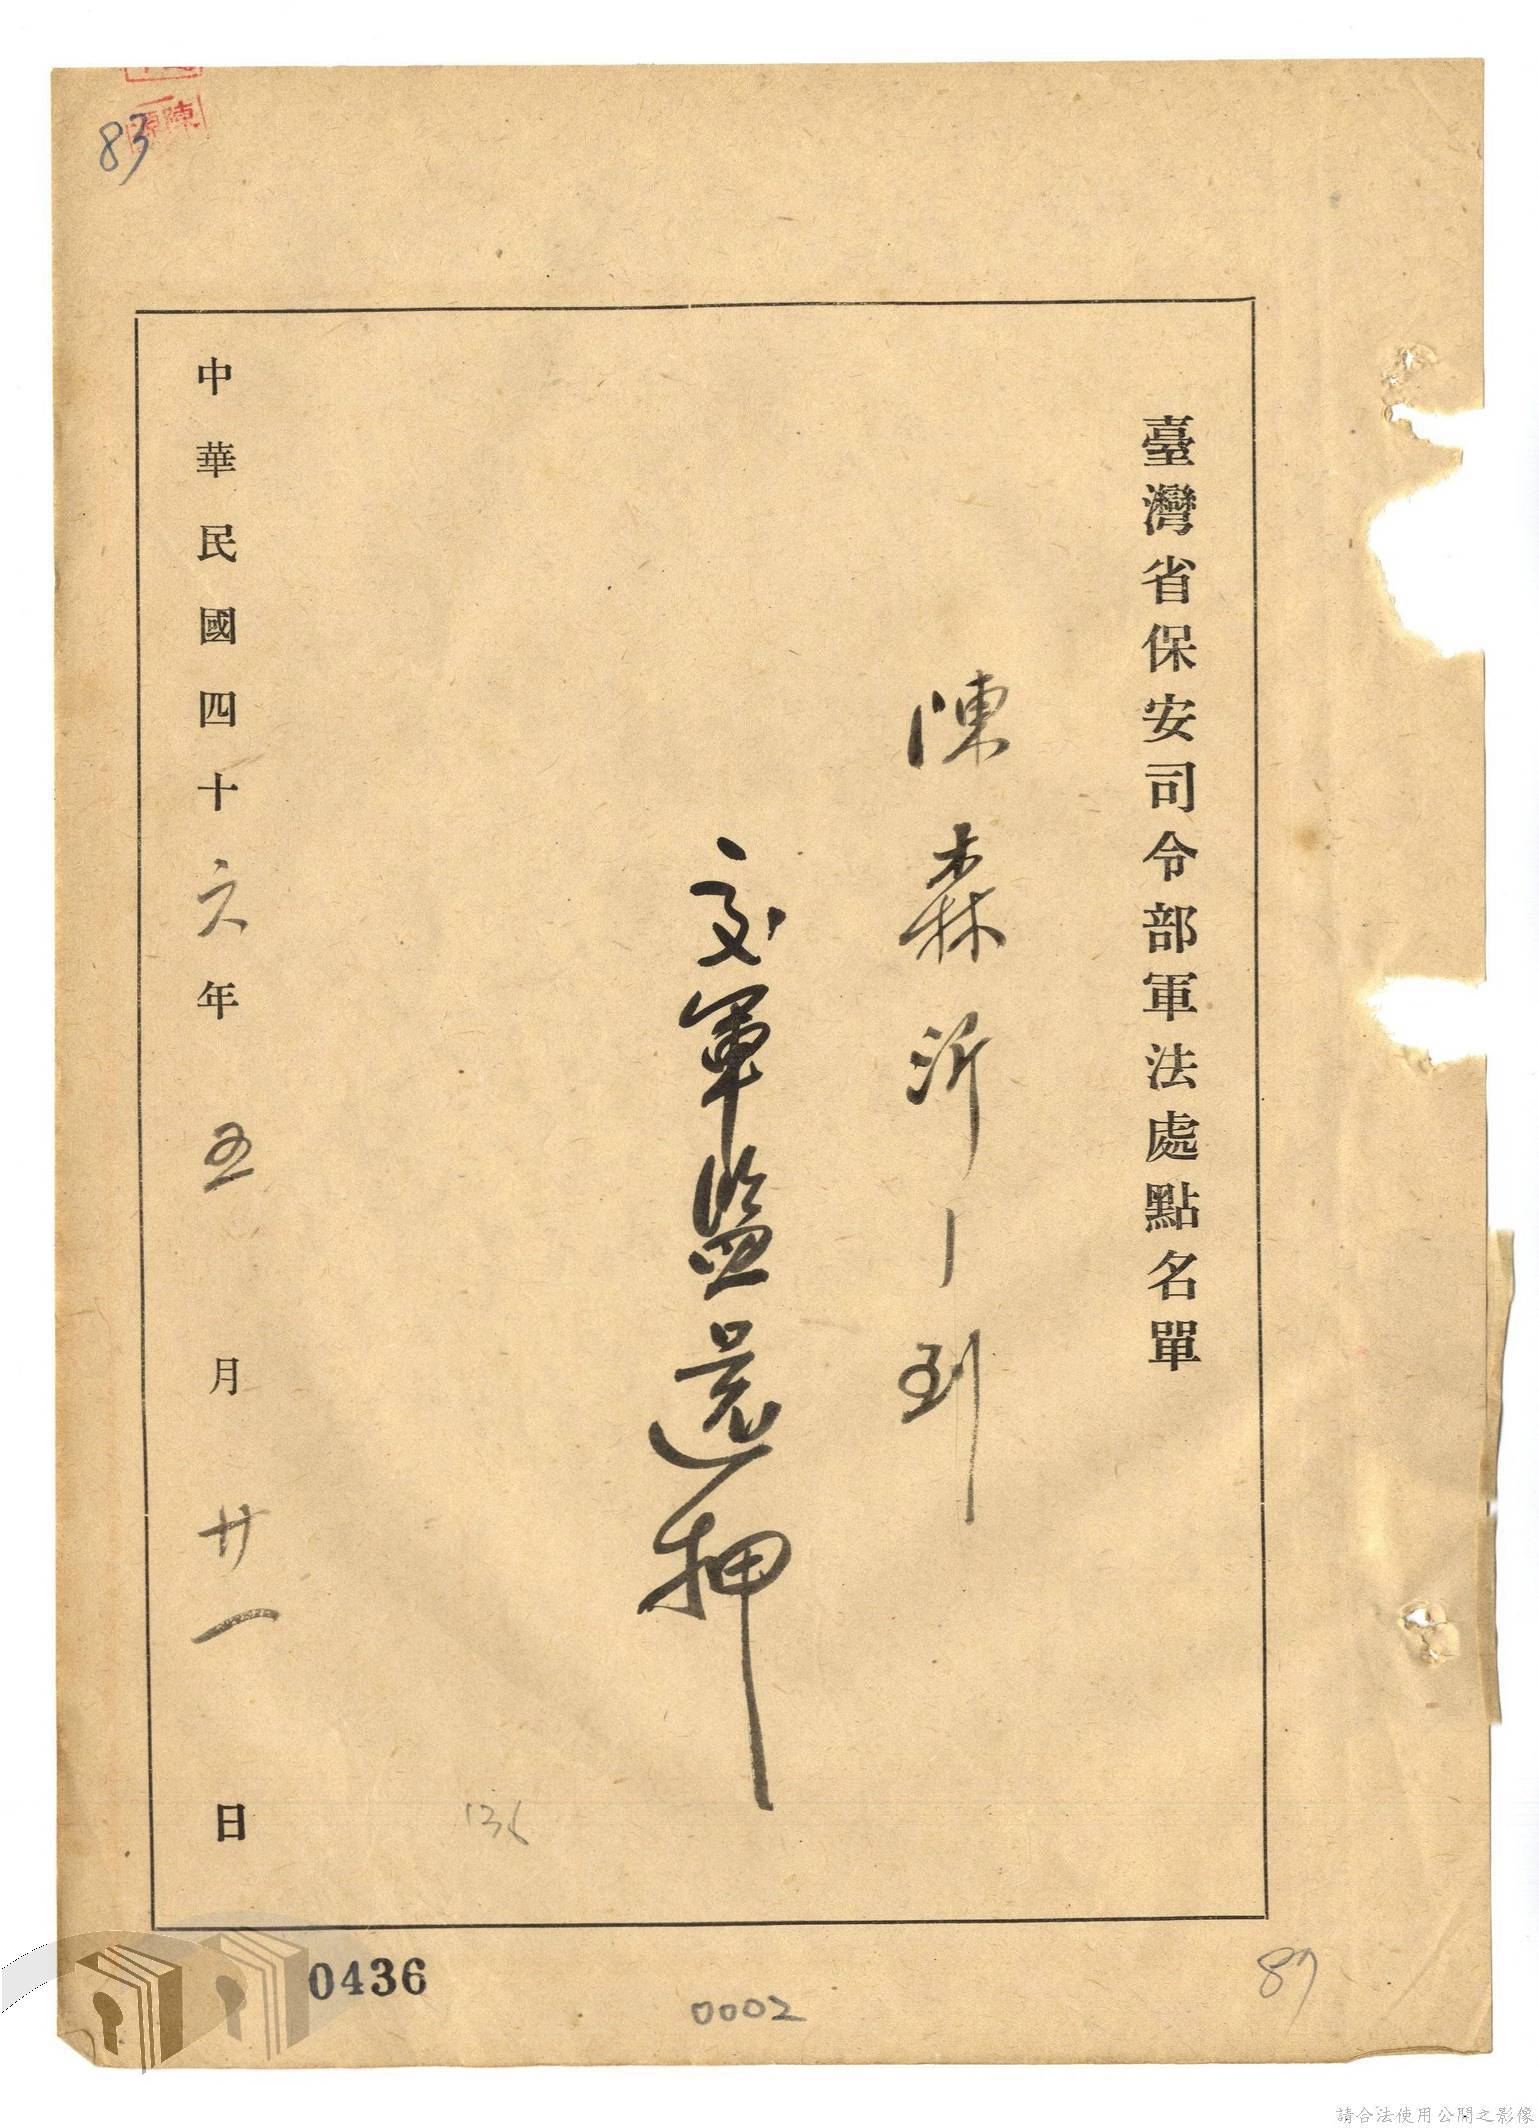 臺灣省保安司令部軍法處點名單
陳森沂 到
交軍監還押
中華民國四十六年五月廿一日
83
陳源
136
0436
0002
87
請合法使用公開之影像